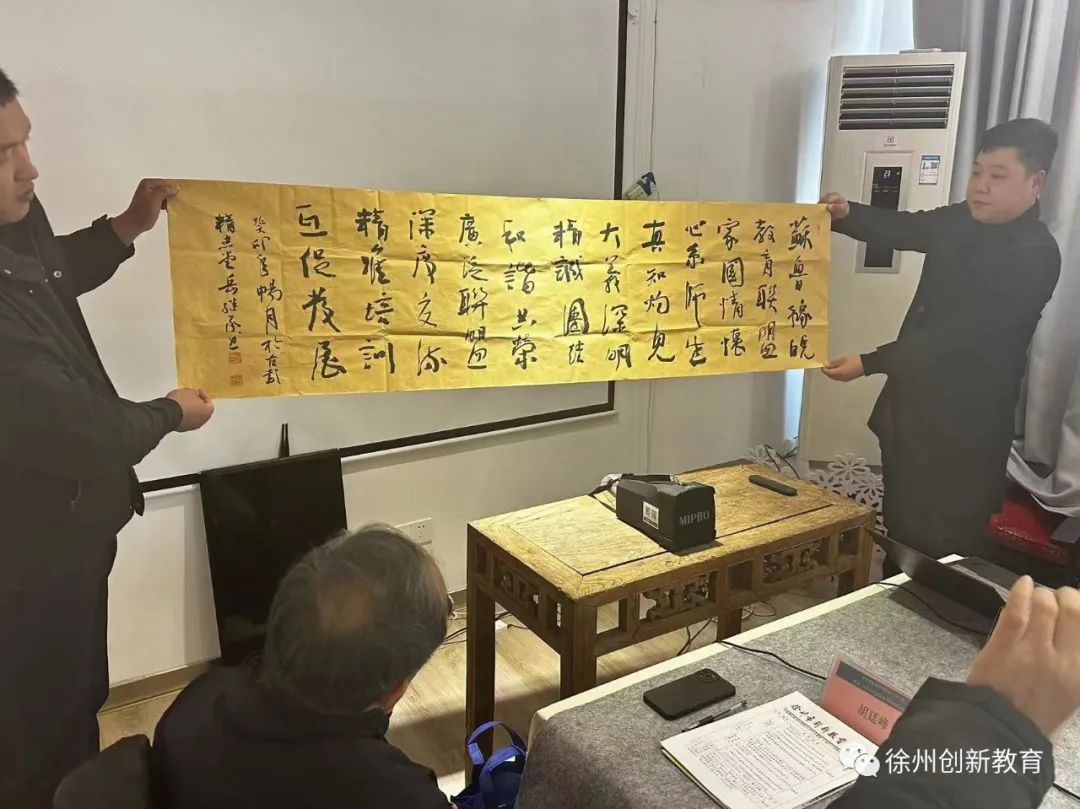 蘇魯豫皖
教育聯盟
家國情懷
心系師生
真知灼見
大義深明
精誠團結
和諧共榮
廣泛聯盟
深度交流
精準培訓
互促發展
癸卯年暢月於古彭
MIPRO
胡廷峰
徐州市創新教育
徐州创新教育